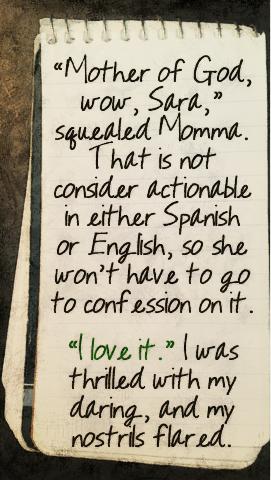 “Mother of God,
wow, Sara,”
squealed Momma.
That is not
consider actionable
in either Spanish
or English, so she
won't have to go
to confession on it.
“I love it.” I was
thrilled with my
daring, and my
nostrils flared.